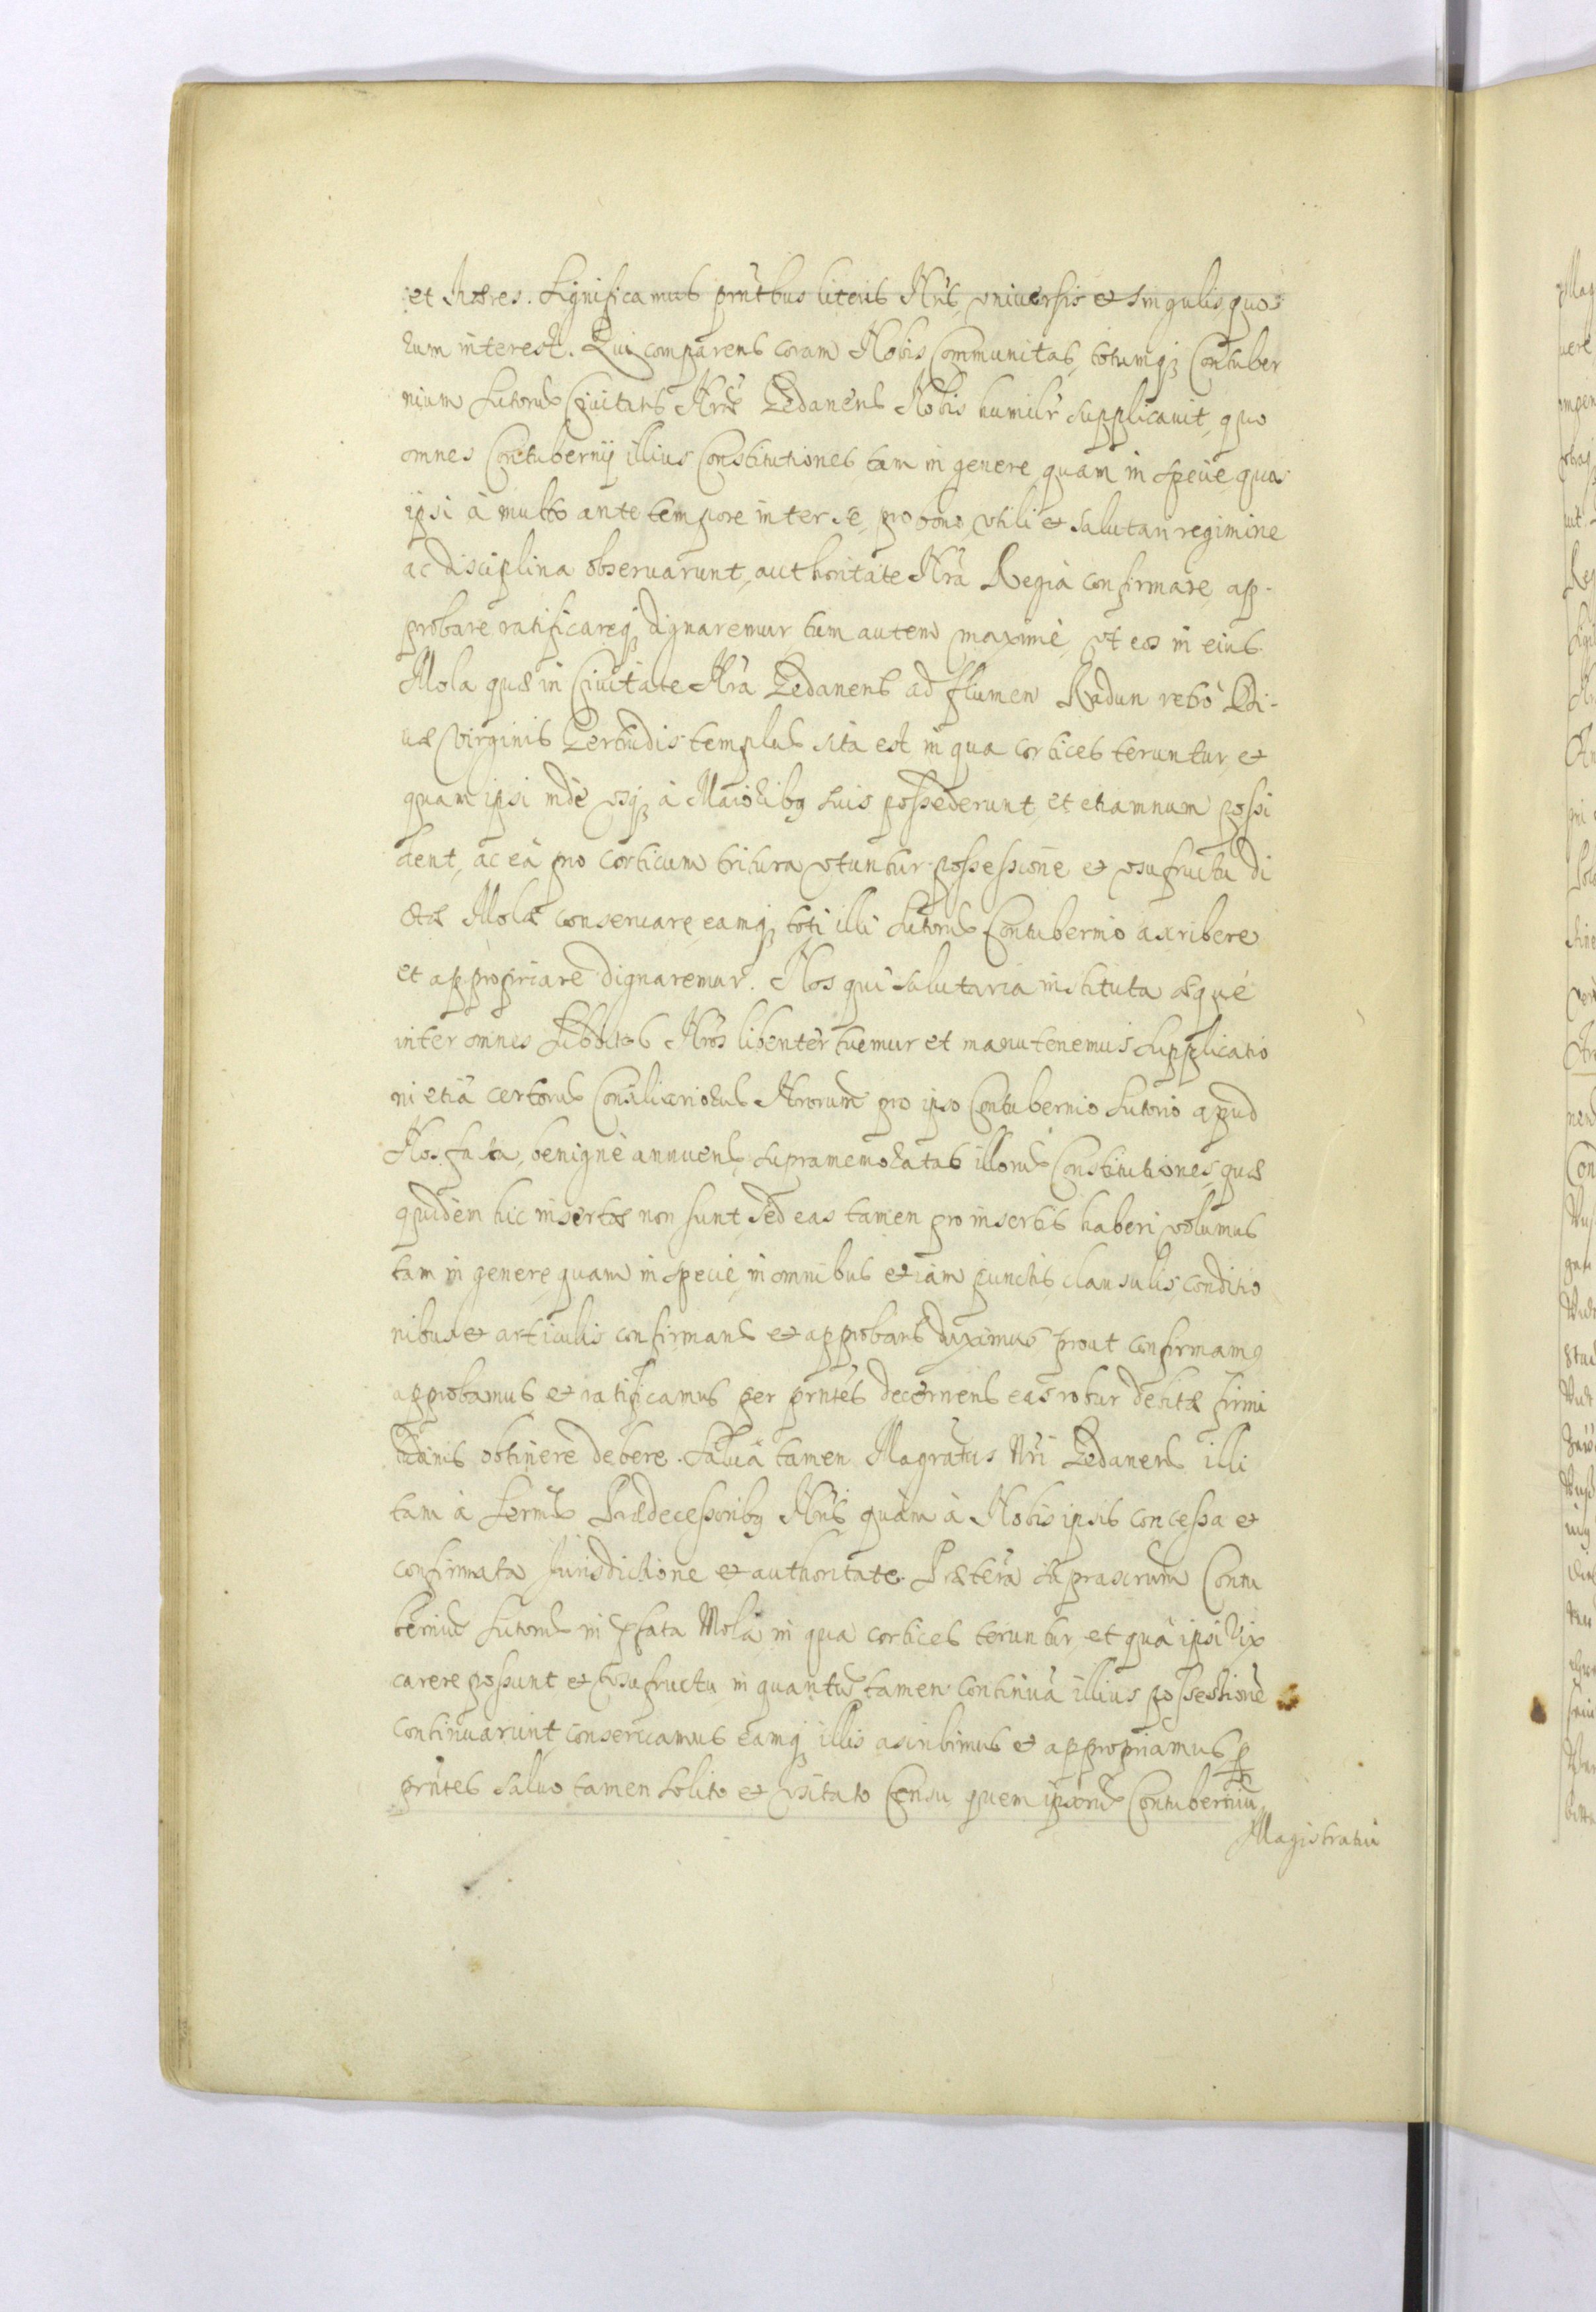 et Hæres. Significamus prntbus literis Nris, vniuersis et singulis quo-
rum interest. Quia comparens coram Nobis Communitas, totumq; Contuber
nium Sutorum Ciuitatis Nræ Gedanens Nobis humilr supplicauit, quo
omnes Contubernij illius Constitutiones tam in genere quam in specie, quas
ipsi à multo ante tempore inter se, pro bono, vtili et salutari regimine
ac disciplina obseruarunt, authoritate Nra Regia confirmare, ap-
probare ratificareq; dignaremur tum autem maximè, vt eos in eius
Mola quæ in Ciuitate Nra Gedanens ad flumen Radun retrò Di-
uæ Virginis Gertrudis templum sita est in qua cortices teruntur, et
quam ipsi inde vsq; à Maioribq suis possederunt, et etiamnum possi
dent, ac eà pro corticum tritura vtuntur possessione et vsufructu di
ctæ Molæ conseruare, eamq; toti illi Sutorum Contubernio ascribere
et appropriare dignaremur. Nos qui salutaria instituta æquè
inter omnes Subditos Nros libenter tuemur et manutenemus Supplicatio
ni etiā certorum Consiliariorum Nrorum pro ipso Contubernio Sutorio apud
Nos facta, benignè annuens, supramemoratas illorum Constitutiones, quæ
quidem hic insertæ non sunt, sed eas tamen pro insertis haberi volumus
tam in genere, quam in specie, in omnibus etiam punctis, clausulis, conditio
nibus et articulis confirmand et approband duximus, prout confirmamq
approbamus et ratificamus per prntes, decernens eas robur debitæ firmi
tudinis obtinere debere. Salua tamen Magratus Nri Gedanens illi
tam à Sermis Prædecessoribq Nris quàm à Nobis ipsis concessa et
confirmata Iurisdictione et authoritate. Præterà suprascrum Contu
bernium Sutorum in pfata Mola in qua cortices teruntur, et quâ ipsi vix
carere possunt et vsufructu in quantum tamen continuâ illius possessione
continuarunt conseruamus eamq; illis ascribimus et appropriamus p
prntes saluo tamen solito et vsitato Censu quem ipsorum Contuberniū
Magistratui